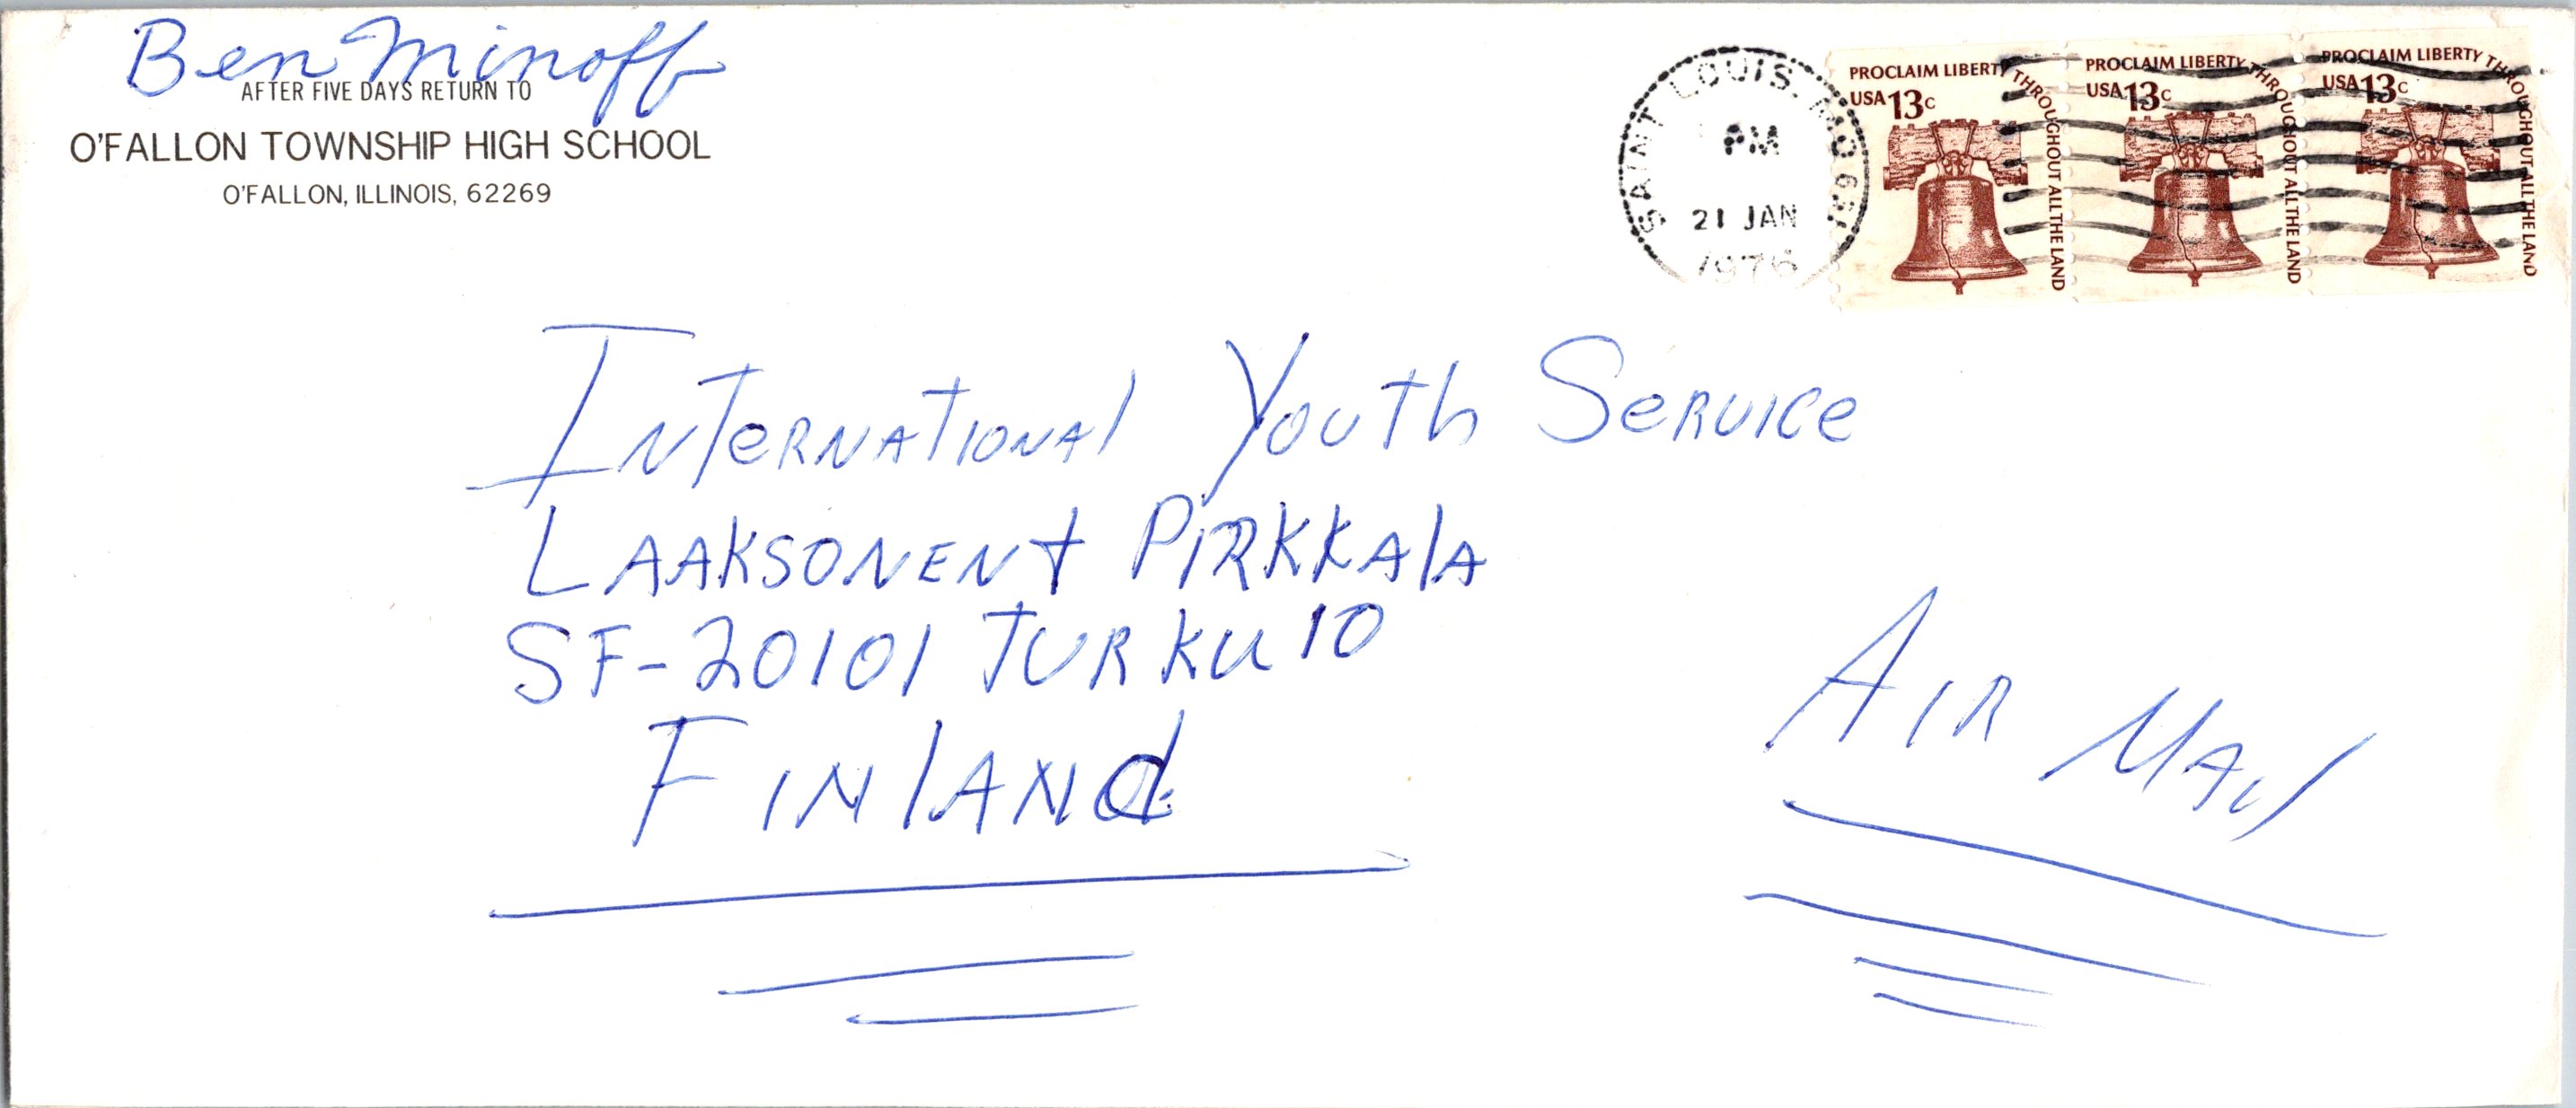 Ben Minoff
AFTER FIVE DAYS RETURN TO
O'FALLON TOWNSHIP HIGH SCHOOL
O'FALLON, ILLINOIS, 62269
SAINT LOUIS. MO 631
PM
21 JAN
1976
PROCLAIM LIBERTY THROUGHOUT ALL THE LAND
USA 13c
PROCLAIM LIBERTY THROUGHOUT ALL THE LAND
USA 13c
PROCLAIM LIBERTY THROUGHOUT ALL THE LAND
USA 13c
INTERNATIONAL YOUTH SERVICE
LAAKSONEN + PIRKKALA
SF-20101 TURKU 10
FINLANd
AIR MAIl